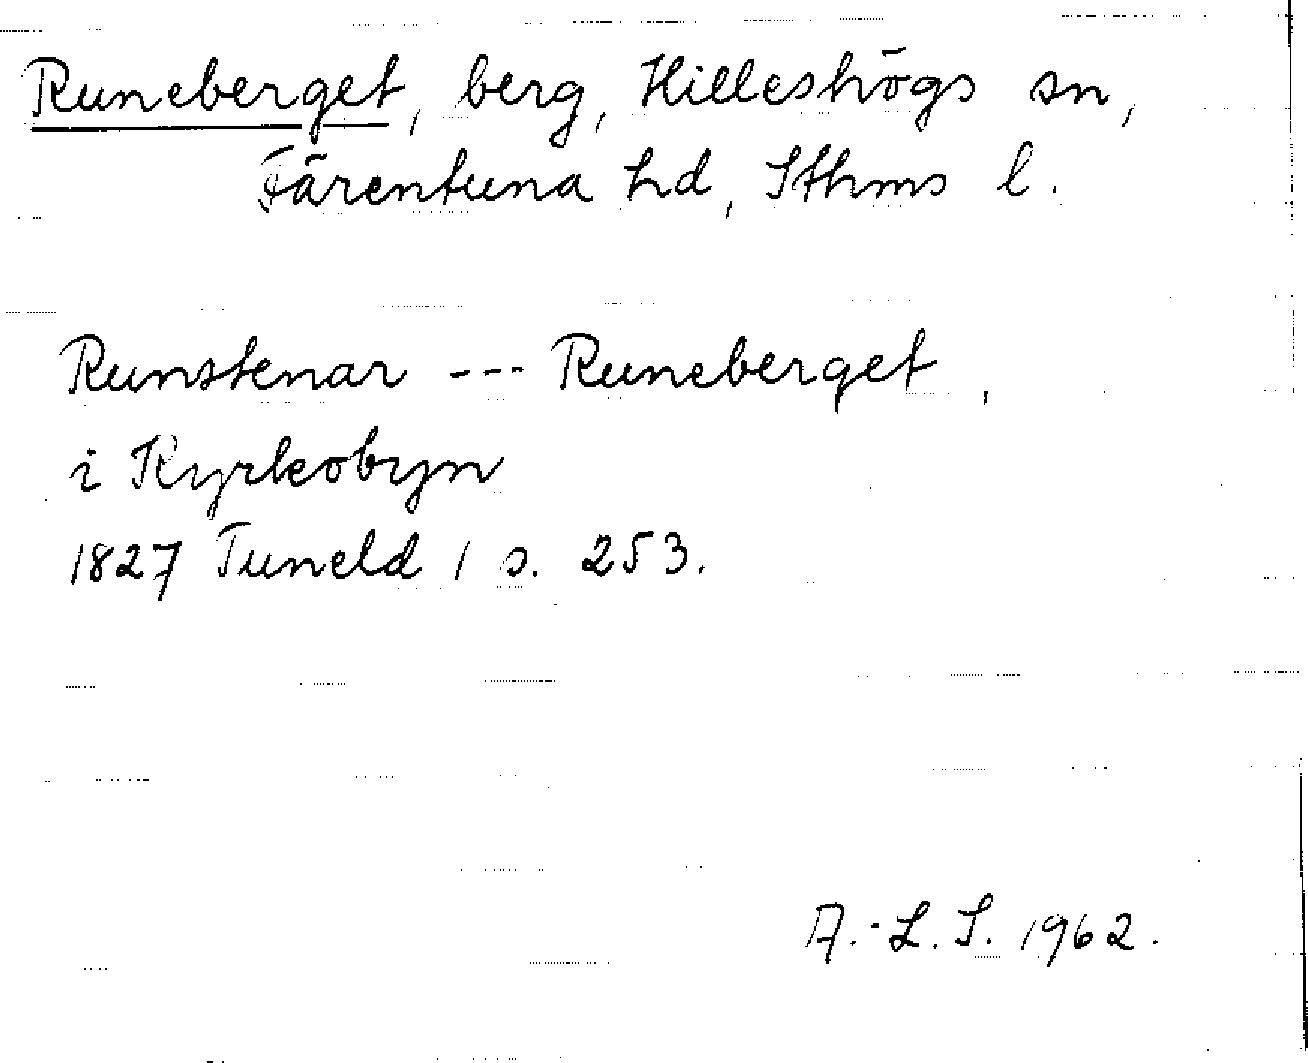 Runeberget, berg, Hilleshögs sn,
Färentuna hd, Sthms l.
Runstenar --- Runeberget,
i Kyrkobyn
1827 Tuneld 1 s. 253.
A.-L. S. 1962.